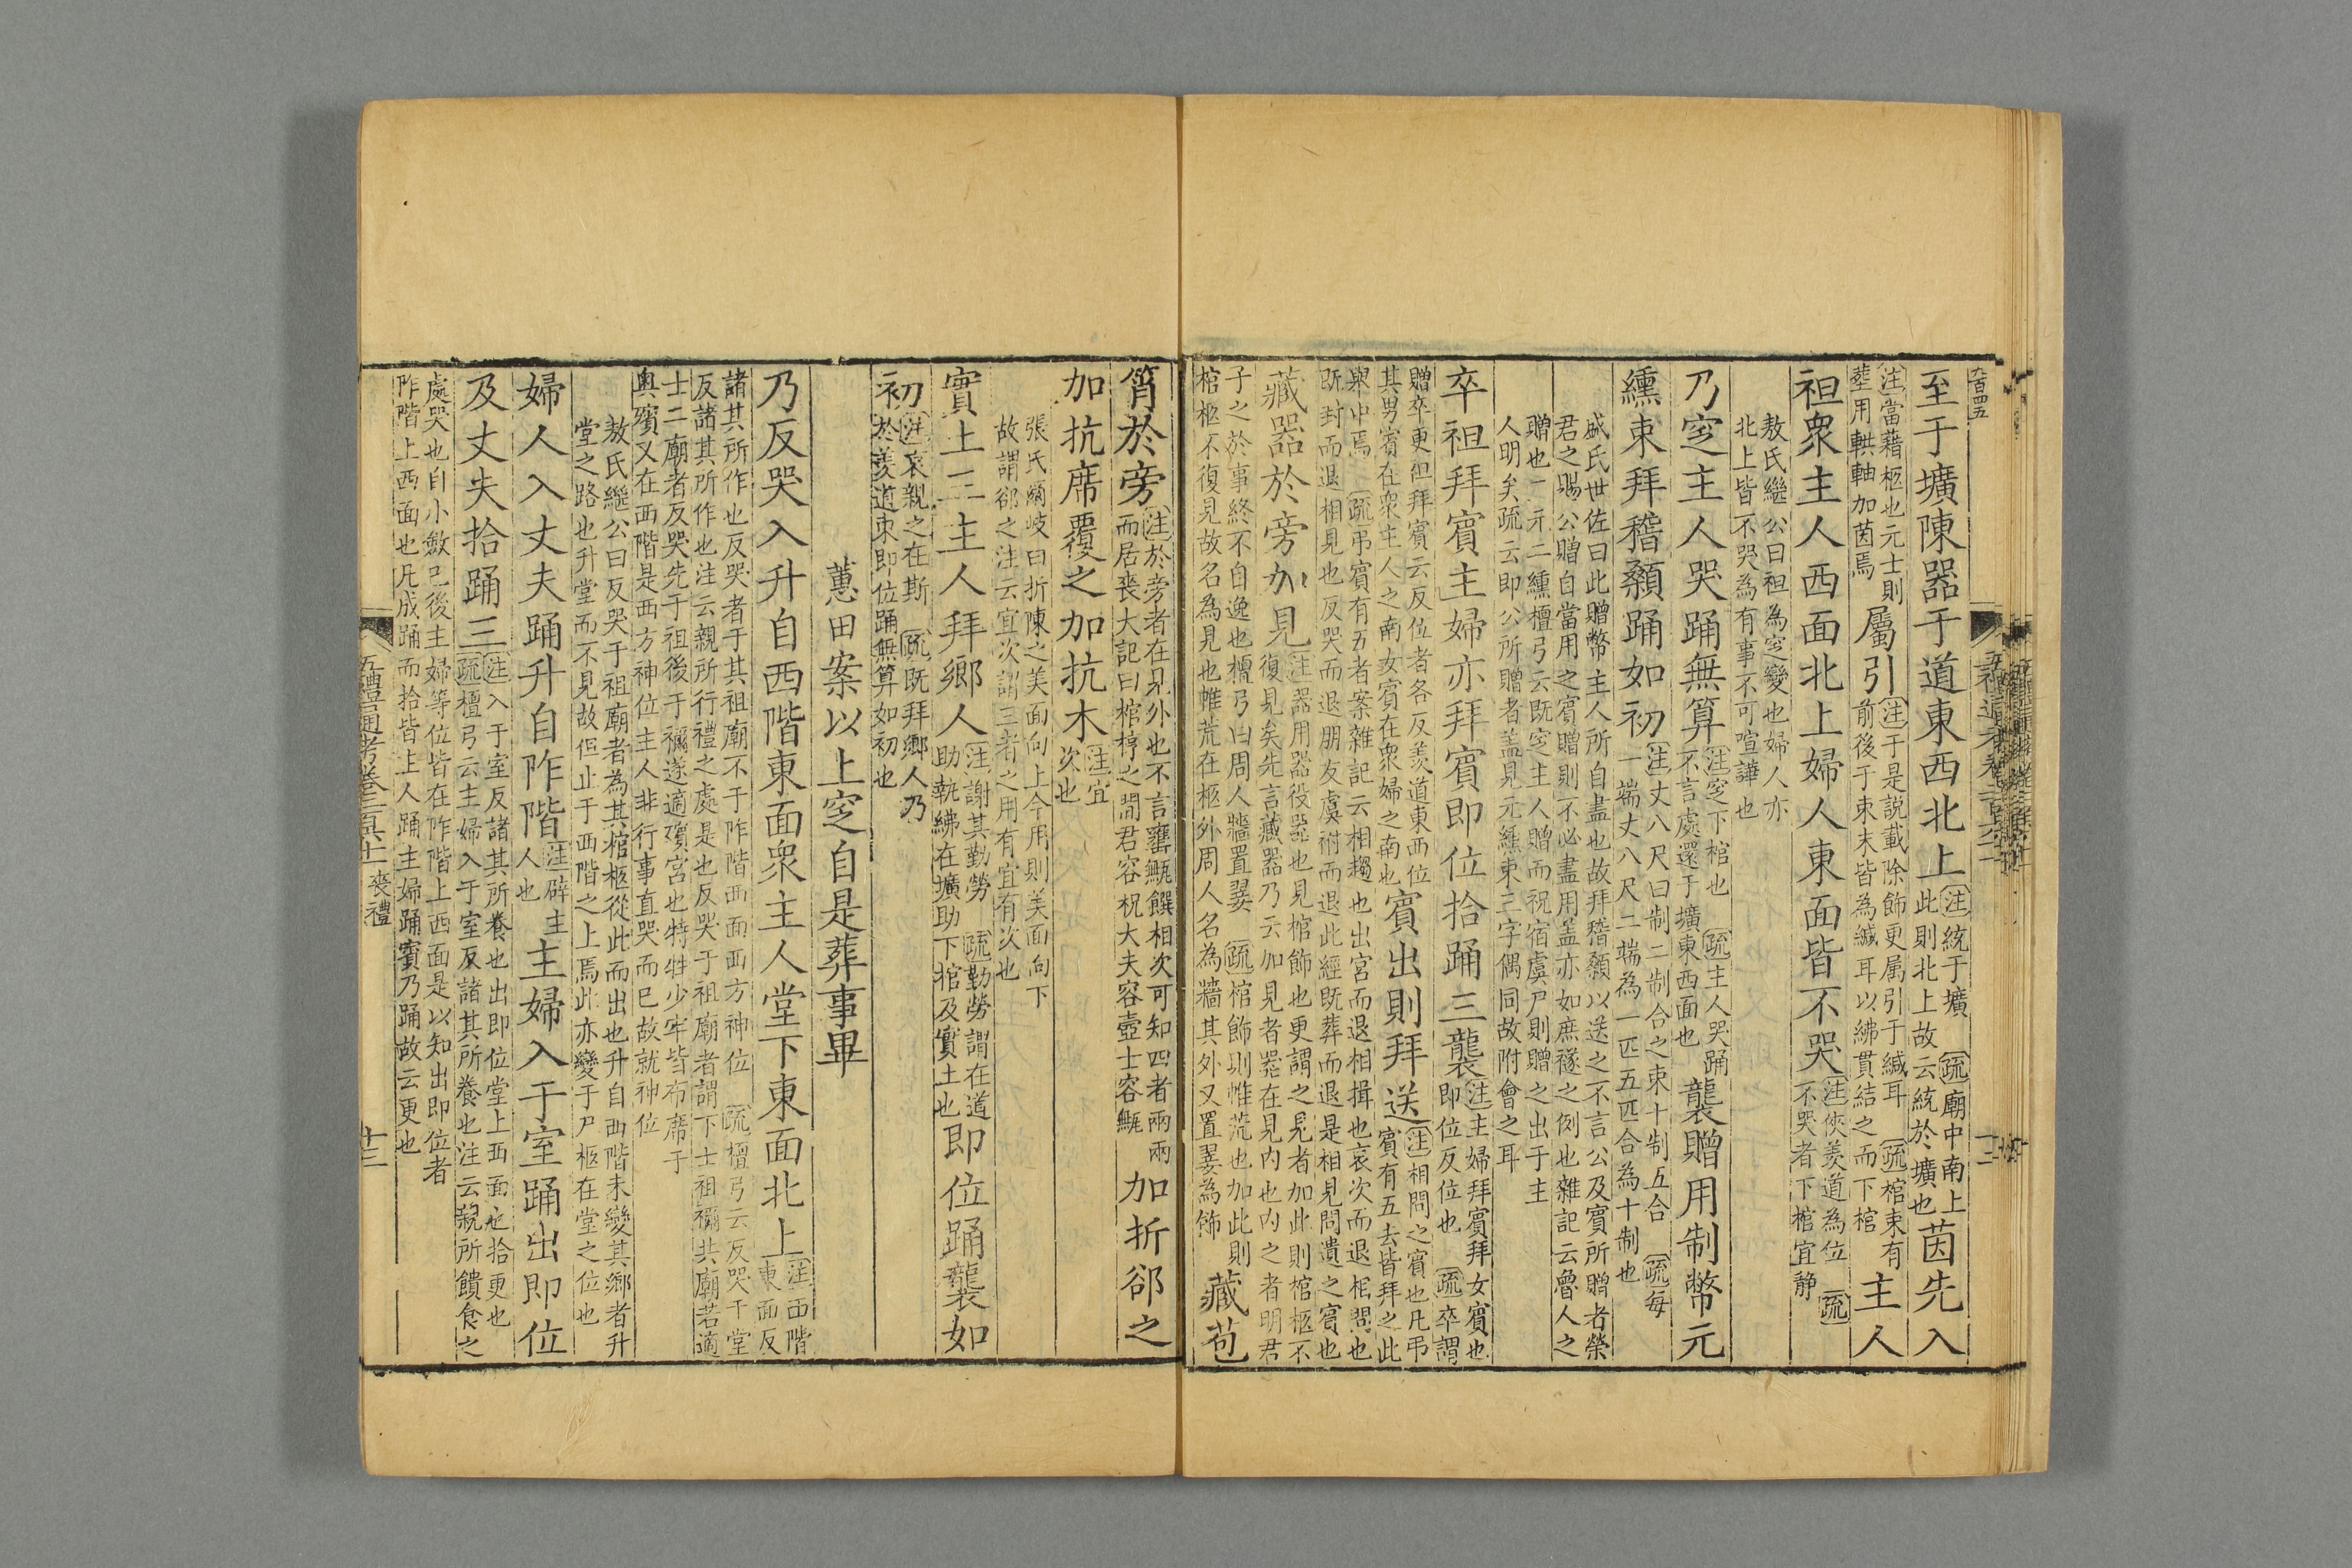 九百四五
至于壙陳器于道東西北上注統于壙疏廟中南上此則北上故云統於壙也茵先入
注當藉柩也元士則葬用輁軸加茵焉屬引注于是說載除飾更屬引于緘耳疏棺束有前後于束末皆為緘耳以紼貫結之而下棺主人
袒衆主人西面北上婦人東面皆不哭注俠羨道為位疏不哭者下棺宜静
敖氏繼公曰袒為窆變也婦人亦
北上皆不哭為有事不可喧譁也
乃窆主人哭踊無算注窆下棺也疏主人哭踊不言處還于壙東西面也襲贈用制幣元
纁束拜稽顙踊如初注丈八尺曰制二制合之束十制五合疏每一端丈八尺二端為一匹五匹合為十制也
盛氏世佐曰此贈幣主人所自盡也故拜稽顙以送之不言公及賓所贈者榮
君之賜公贈自當用之賓贈則不必盡用盖亦如庶襚之例也雜記云魯人之
贈也二元二纁檀弓云既窆主人贈而祝宿虞尸則贈之出于主
人明矣疏云即公所贈者盖見元纁束三字偶同故附會之耳
卒袒拜賓主婦亦拜賓即位拾踊三襲注主婦拜賓拜女賓也即位反位也疏卒謂
贈卒更袒拜賓云反位者各反羨道東西位
其男賓在衆主人之南女賓在衆婦之南也賓出則拜送注相問之賓也凡弔賓有五去皆拜之此
舉中焉疏弔賓有五者案雜記云相趨也出宮而退相揖也哀次而退相問也
既封而退相見也反哭而退朋友虞祔而退此經既葬而退是相見問遺之賓也
藏器於旁加見注器用器役器也見棺飾也更謂之見者加此則棺柩不復見矣先言藏器乃云加見者器在見内也内之者明君
子之於事終不自逸也檀弓曰周人牆置翣疏棺飾則帷荒也加此則
棺柩不復見故名為見也帷荒在柩外周人名為牆其外又置翣為飾藏苞
筲於旁注於旁者在見外也不言罋甒饌相次可知四者兩兩而居喪大記曰棺椁之間君容柷大夫容壺士容甒加折郤之
加抗席覆之加抗木注宜次也
張氏爾岐曰折陳之美面向上今用則美面向下
故謂郤之注云宜次謂三者之用有宜有次也
實土三主人拜鄉人注謝其勤勞疏勤勞謂在道助執紼在壙助下棺及實土也即位踊襲如
初注哀親之在斯疏既拜鄉人乃於羨道東即位踊無算如初也
蕙田案以上窆自是葬事畢
乃反哭入升自西階東面衆主人堂下東面北上注西階東面反
諸其所作也反哭者于其祖廟不于阼階西面西方神位疏檀弓云反哭于堂
反諸其所作也注云親所行禮之處是也反哭于祖廟者謂下士祖禰共廟若適
士二廟者反哭先于祖後于禰遂適殯宮也特牲少牢皆布席于
奧殯又在西階是西方神位主人非行事直哭而已故就神位
敖氏繼公曰反哭于祖廟者為其棺柩從此而出也升自西階未變其鄉者升
堂之路也升堂而不見故但止于西階之上焉此亦變于尸柩在堂之位也
婦人入丈夫踊升自阼階注辟主人也主婦入于室踊出即位
及丈夫拾踊三注入于室反諸其所養也出即位堂上西面也拾更也疏檀弓云主婦入于室反諸其所養也注云親所饋食之
處哭也自小斂已後主婦等位皆在阼階上西面是以知出即位者
阼階上西面也凡成踊而拾皆主人踊主婦踊賓乃踊故云更也
喪禮
十三